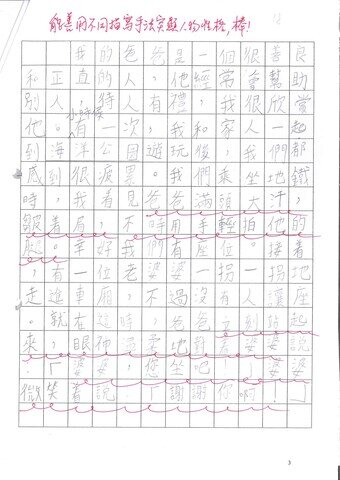 能善用不同描寫手法突顯人物性格，棒！
我的爸爸是一個很善良
和正直的人，他經常會幫助
別人，待人有禮，我很欣賞
他。小時候有一次，我和家人一起
到海洋公園遊玩後，我們都
感到很疲累。我們乘坐地鐵
時，我看見爸爸滿頭大汗，
皺着眉，不時用手輕拍他的
腿。幸好我們有座位。接着
，有一位老婆婆一拐一拐地
走進車廂，不過沒有人讓座
。就在這時，爸爸立刻站起
來，眼神溫柔地對老婆婆說
：「婆婆，您坐吧！」婆婆
微笑着說：「謝謝你啊！」
3